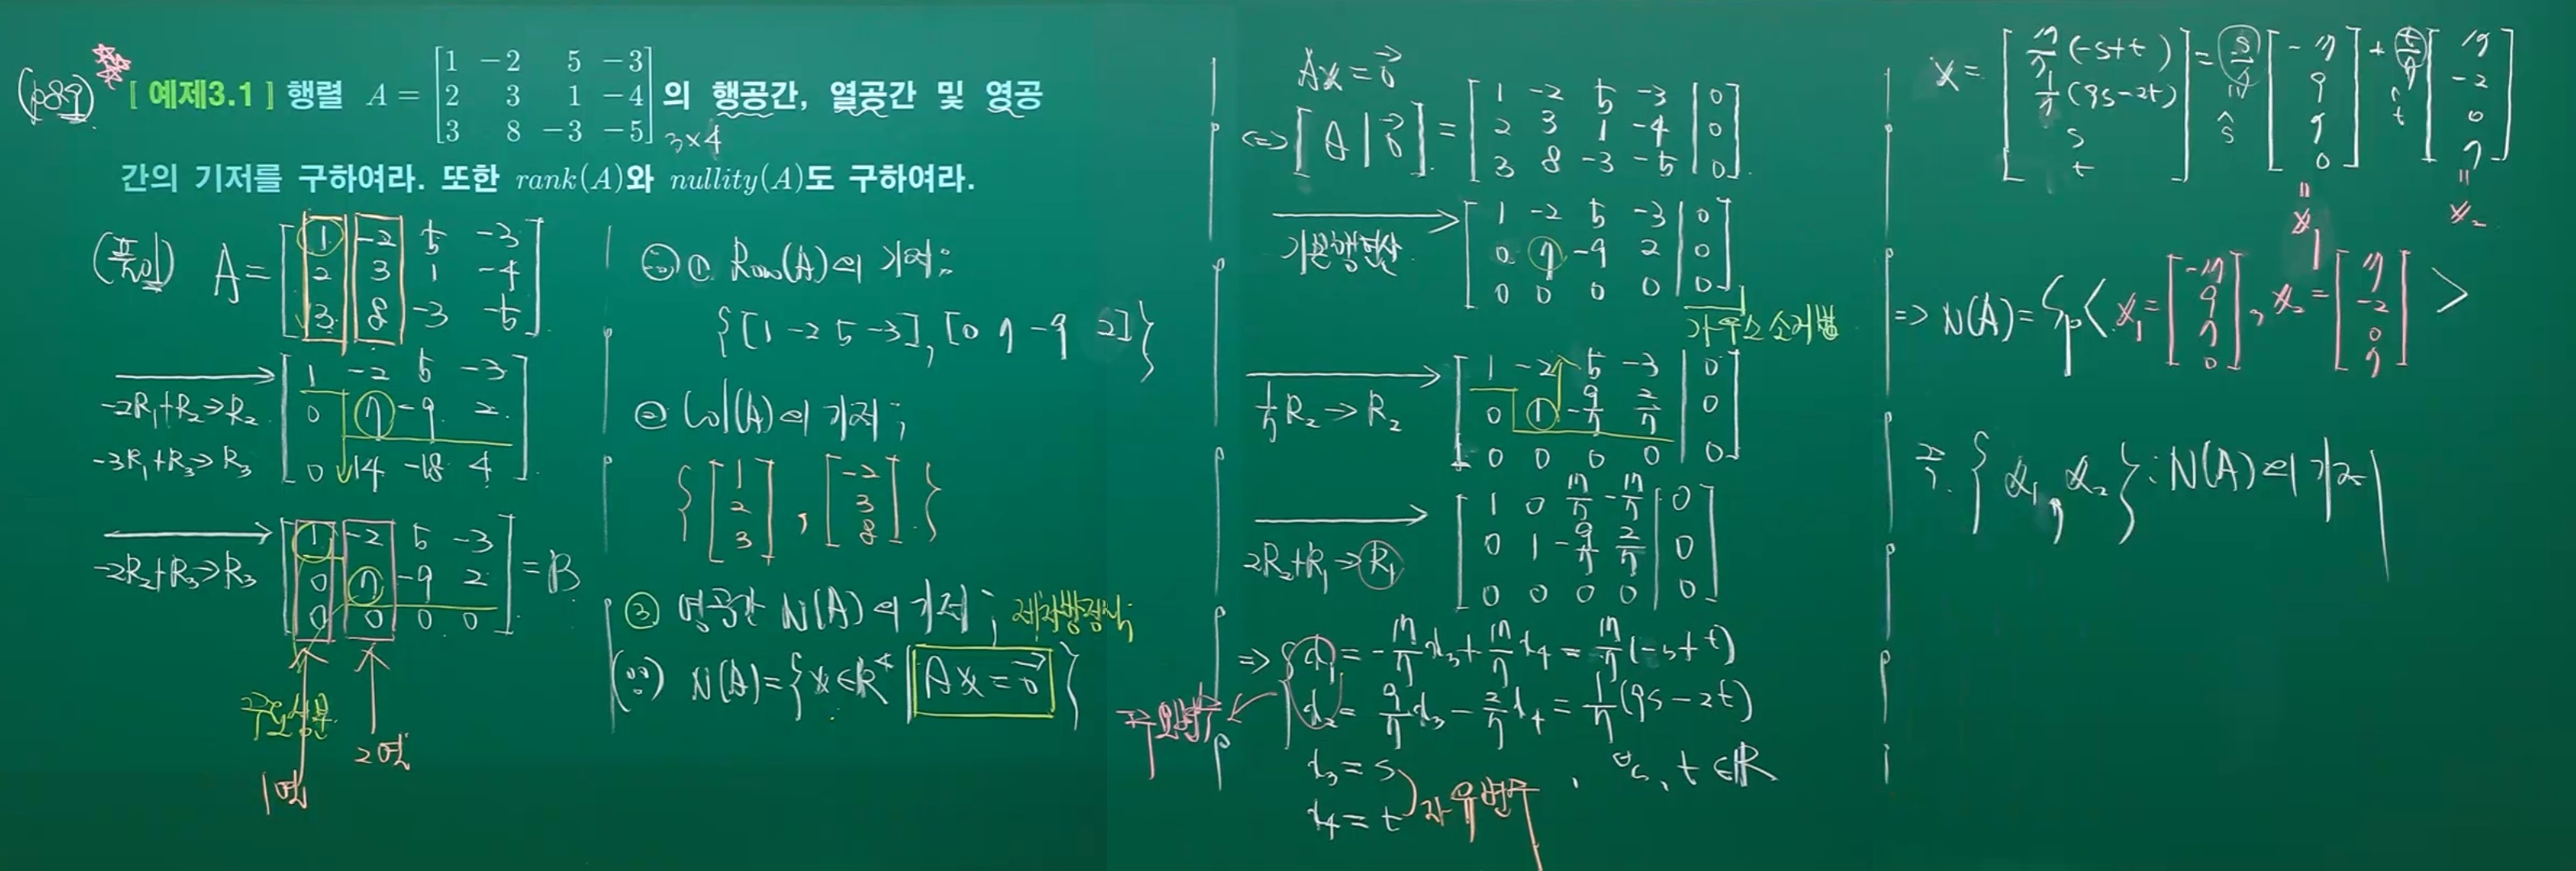 (p89) [ 예제3.1 ] 행렬 A = [1 −2 5 −3; 2 3 1 −4; 3 8 −3 −5] 3×4 의 행공간, 열공간 및 영공
간의 기저를 구하여라. 또한 rank(A)와 nullity(A)도 구하여라.
(풀이) A = [1 −2 5 −3; 2 3 1 −4; 3 8 −3 −5]
−2R₁+R₂→R₂
−3R₁+R₃→R₃
[1 −2 5 −3; 0 7 −9 2; 0 14 −18 4]
−2R₂+R₃→R₃
[1 −2 5 −3; 0 7 −9 2; 0 0 0 0] = B
주성분
1열
2열
① Row(A)의 기저;
{[1 −2 5 −3], [0 7 −9 2]}
② Col(A)의 기저;
{[1; 2; 3], [−2; 3; 8]}
③ 영공간 N(A)의 기저; 제차방정식
(∵) N(A) = {x∈R⁴ | Ax = 0⃗}
Ax = 0⃗
⇔ [A | 0⃗] = [1 −2 5 −3 | 0; 2 3 1 −4 | 0; 3 8 −3 −5 | 0]
기본행연산
[1 −2 5 −3 | 0; 0 7 −9 2 | 0; 0 0 0 0 | 0]
가우스소거법
1/7 R₂ → R₂
[1 −2 5 −3 | 0; 0 1 −9/7 2/7 | 0; 0 0 0 0 | 0]
2R₂+R₁→R₁
[1 0 17/7 −17/7 | 0; 0 1 −9/7 2/7 | 0; 0 0 0 0 | 0]
⇒ { x₁ = −17/7 x₃ + 17/7 x₄ = 17/7 (−s+t)
x₂ = 9/7 x₃ − 2/7 x₄ = 1/7 (9s−2t)
x₃ = s
x₄ = t
자유변수
, s, t ∈ R
x = [17/7 (−s+t); 1/7 (9s−2t); s; t] = s/7 [−17; 9; 7; 0] + t/7 [17; −2; 0; 7]
= ŝ
t̂
= x₁
= x₂
⇒ N(A) = Sp< x₁ = [−17; 9; 7; 0], x₂ = [17; −2; 0; 7] >
∴ {x₁, x₂} : N(A)의 기저